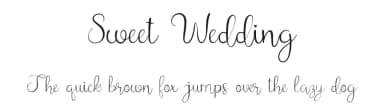 Sweet Wedding
The quick brown fox jumps over the lazy dog